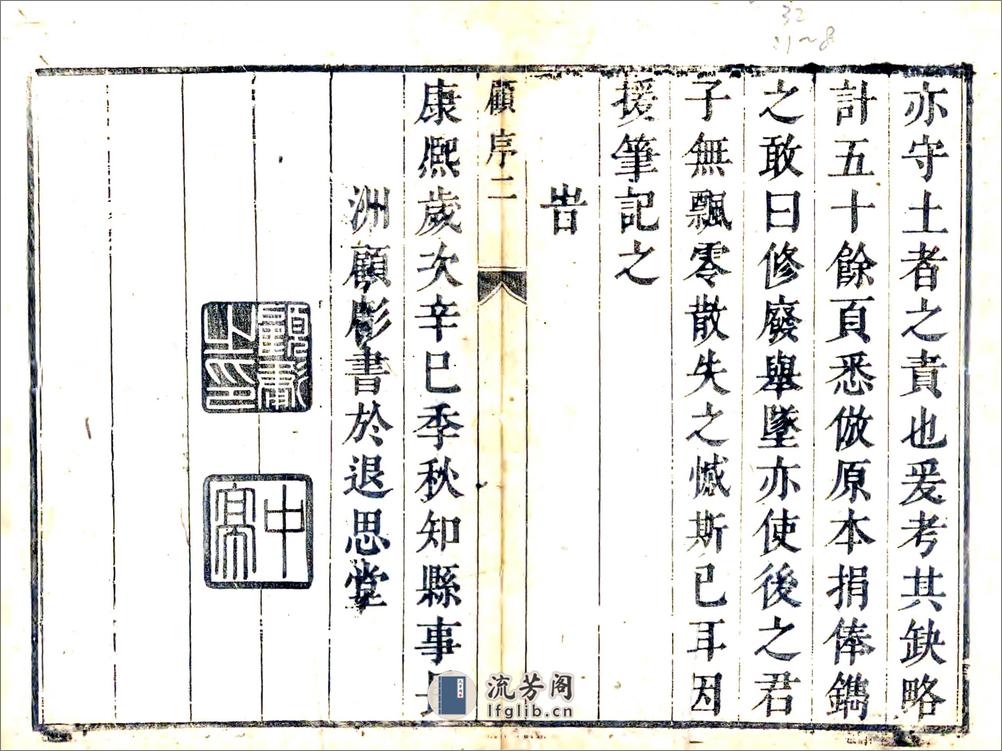 亦守土者之責也爰考其缺略
計五十餘頁悉倣原本捐俸鐫
之敢曰修廢舉墜亦使後之君
子無飄零散失之憾斯已耳因
援筆記之
旹
顧序二
康熙歲次辛巳季秋知縣事長
洲顧彪書於退思堂
流芳阁
lfglib.cn
32
11~8